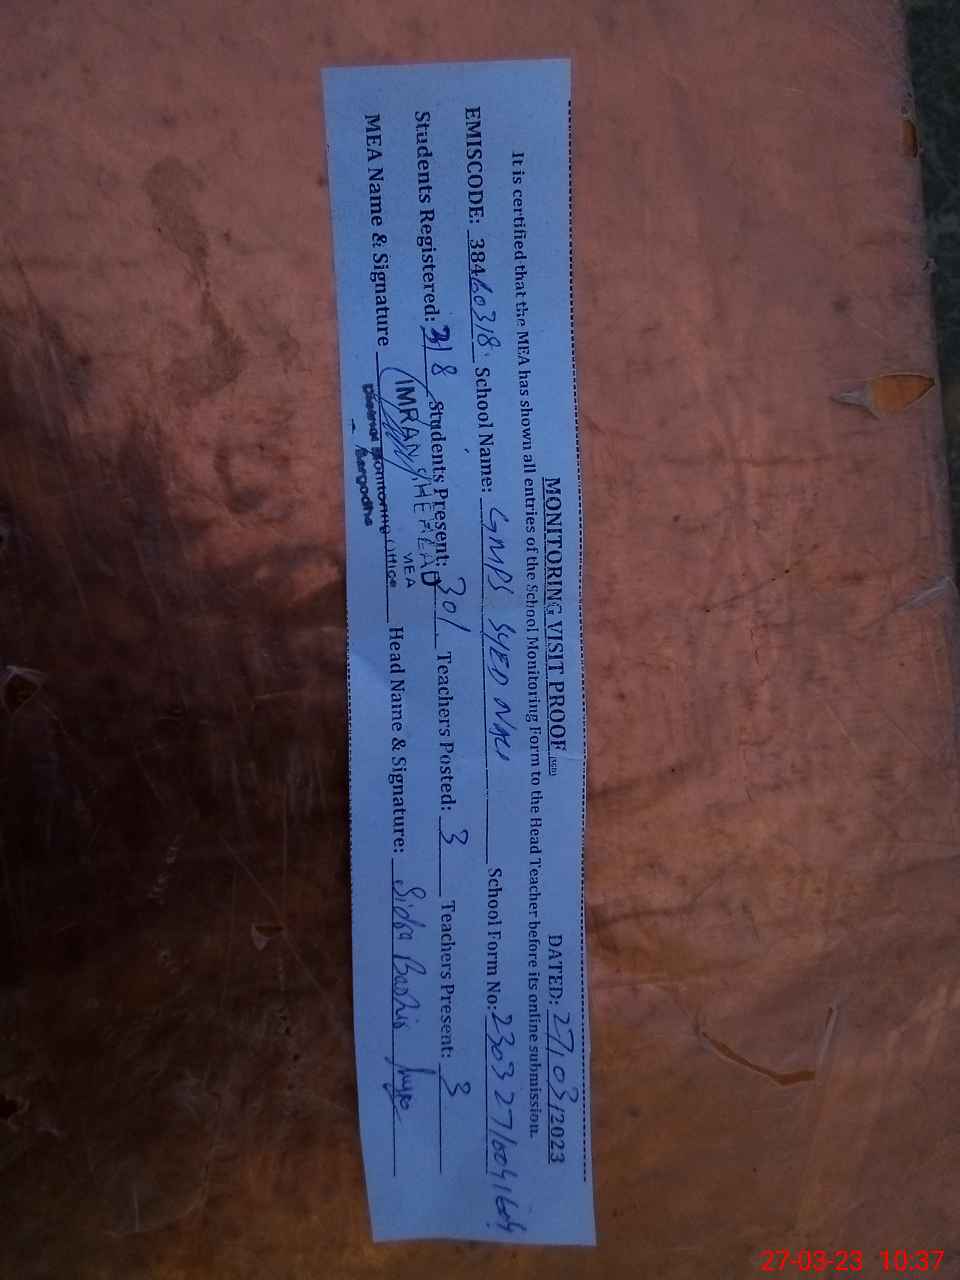 MONITORING VISIT PROOF (SGD) DATED: 27/03/2023
It is certified that the MEA has shown all entries of the School Monitoring Form to the Head Teacher before its online submission.
EMISCODE: 38460318 School Name: GMPS SYED School Form No: 230327
Students Registered: 318 Students Present: 301 Teachers Posted: 3 Teachers Present: 3
MEA Name & Signature (IMRAN SHEHZAD Head Name & Signature: Sidra Bashir
MEA
District Monitoring Office
Sargodha
27-03-23 10:37